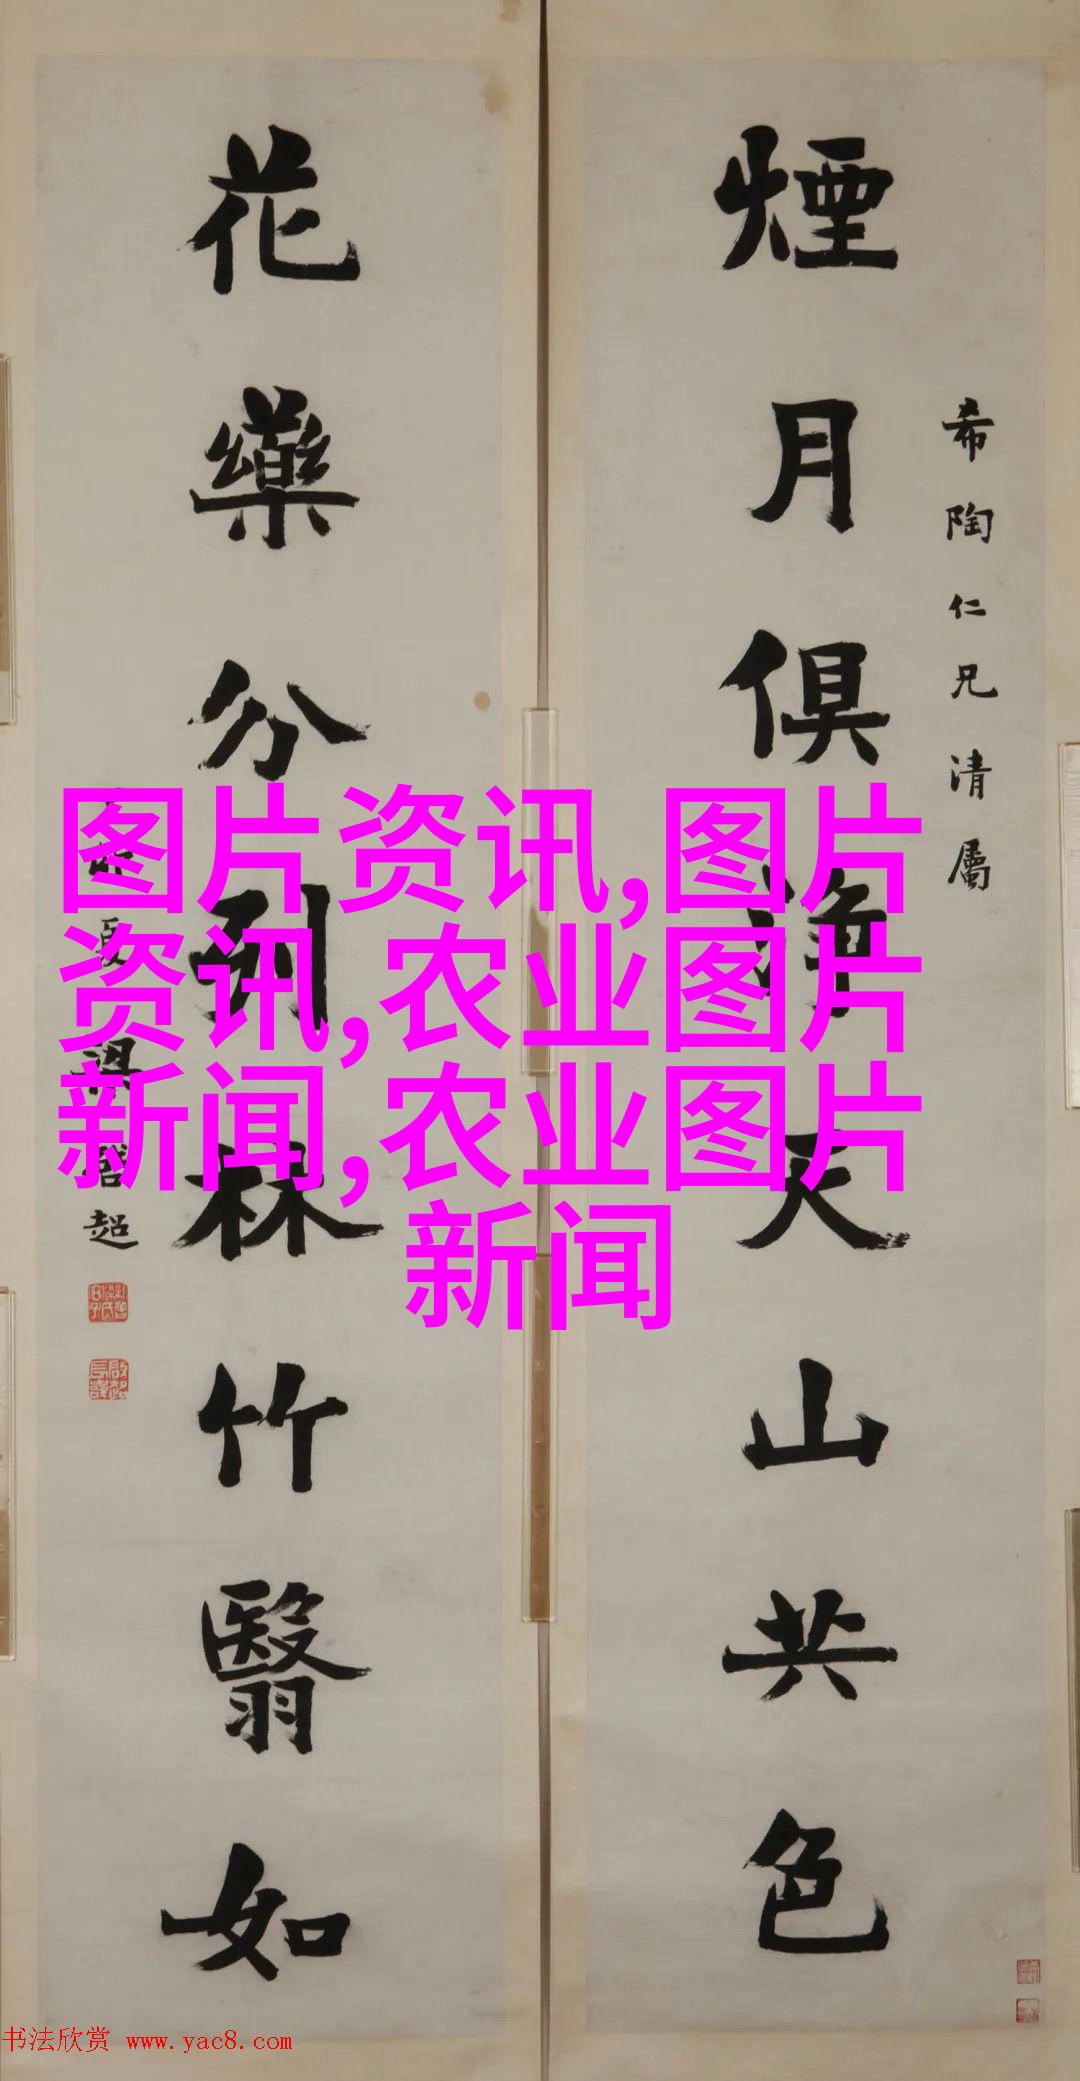 煙月俱淨天山共色
希陶仁兄清屬
花藥分列林竹翳如
夏梁啓超
图片资讯,图片
资讯,农业图片
新闻,农业图片
新闻
书法欣赏 www.yac8.com